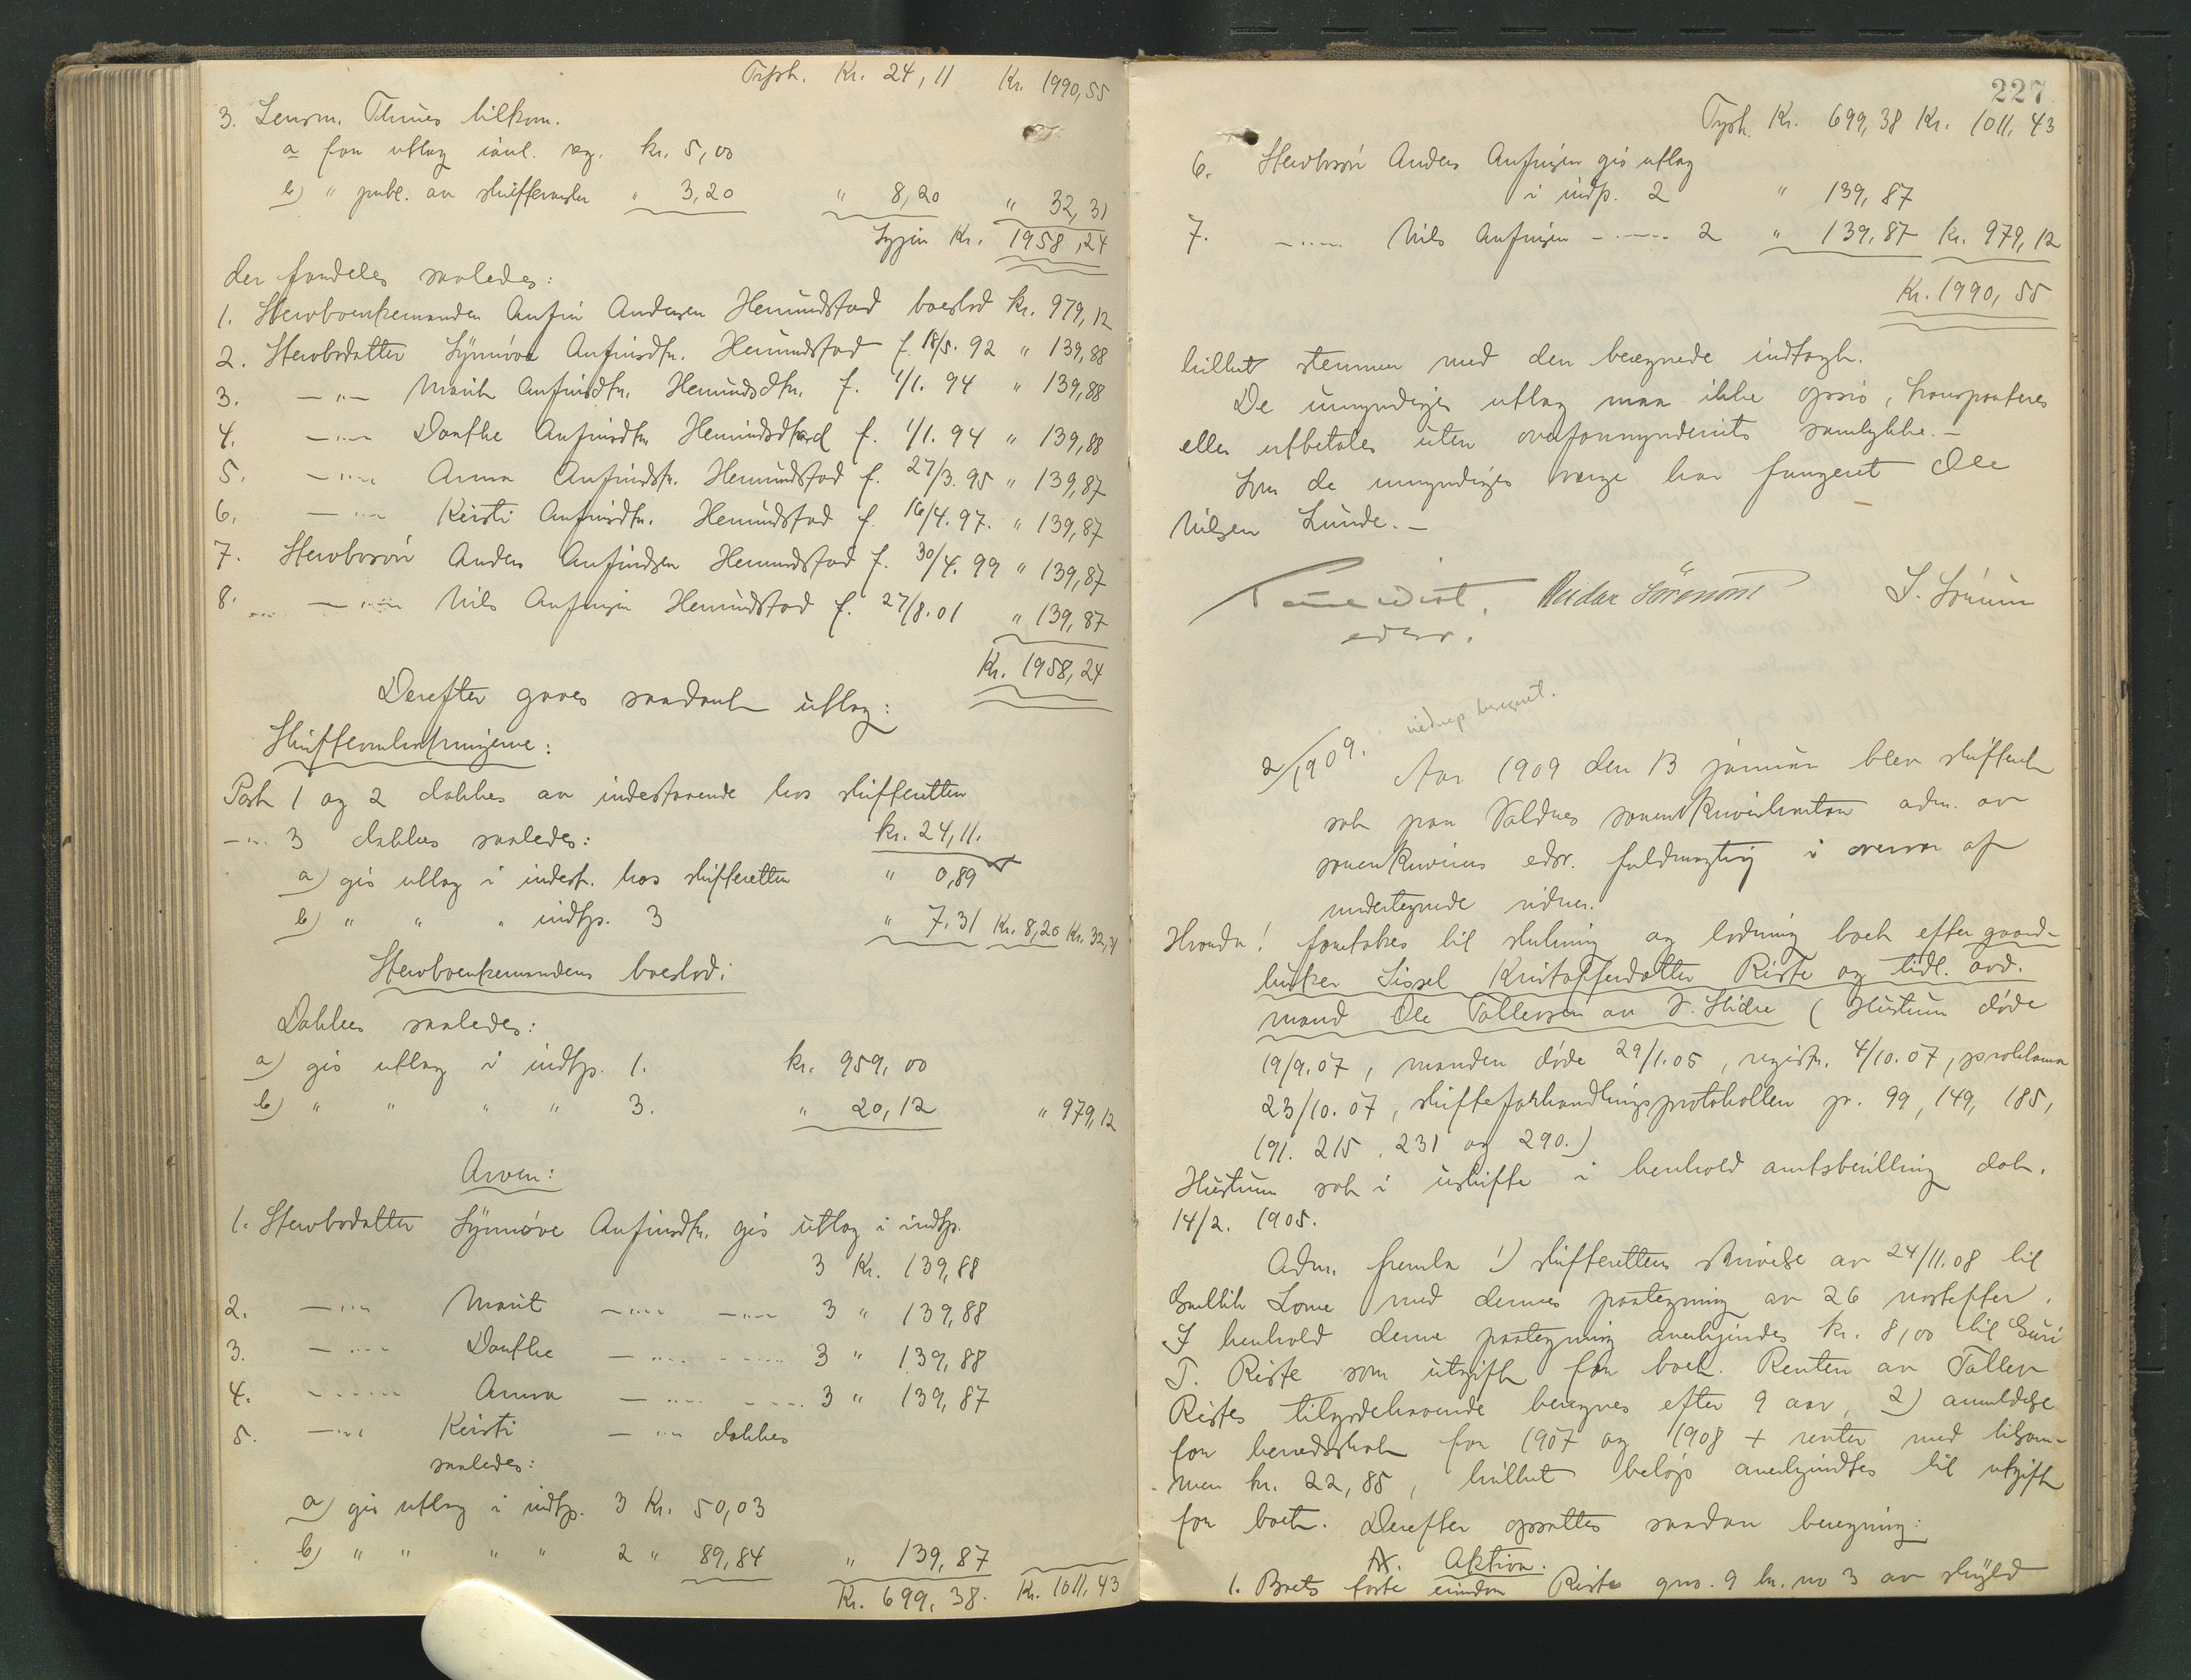 Trsp. Kr. 24,11 Kr. 1990,55
3. Lensm. Thunes tilkom.
a for utlæg inul. reg. kr. 5,00
b) " publ. av skiftesamler " 3,20 " 8,20 " 32,31
Igjen Kr. 1958,24
der fordeles saaledes:
1. Stervboenkemanden Anfin Andersen Hemundstad boeslod kr. 979,12
2. Stervbodatter Synnøve Anfinsdtr. Hemundstad f. 18/5. 92 " 139,88
3. —"— Marit Anfinsdtr. Hemundsdtr. f. 1/1. 94 " 139,88
4. —"— Dorthe Anfinsdtr. Hemundstad f. 1/1. 94 " 139,88
5. —"— Anna Anfindsdtr. Hemundstad f. 27/3. 95 " 139,87
6. —"— Kirsti Anfinsdtr. Hemundstad f. 16/4. 97. " 139,87
7. Stervbosøn Anders Anfindsen Hemundstad f. 30/4. 99 " 139,87
8. —"— Nils Anfinsen Hemundstad f. 27/8. 01 " 139,87
Kr. 1958,24
Derefter gaves saadant utlæg:
Skifteomkostningerne:
Post 1 og 2 dækkes av indestaaende hos skifteretten
kr. 24,11.
—"— 3 dækkes saaledes:
a) gis utlæg i indest. hos skifteretten " 0,89
b) " " " indtp. 3 " 7,31 Kr. 8,20 Kr. 32,31
Stervboenkemandens boeslod:
Dækkes saaledes:
a) gis utlæg i indtp. 1. kr. 959,00
b) " " " " 3. " 20,12 " 979,12
Arven:
1. Stervbodatter Synnøve Anfinsdtr. gis utlæg i indtp.
3 Kr. 139,88
2. —"— Marit —"— —"— 3 " 139,88
3. —"— Dorthe —"— —"— 3 " 139,88
4. —"— Anna —"— —"— 3 " 139,87
5. —"— Kirsti —"— dækkes
saaledes:
a) gis utlæg i indtp. 3 Kr. 50,03
b) " " " " 2 " 89,84 " 139,87
Kr. 699,38. Kr. 1011,43
227
Trsp. Kr. 699,38 Kr. 1011,43
6. Stervbosøn Anders Anfinsen gis utlæg
i indtp. 2 " 139,87
7. —"— Nils Anfinsen —"— 2 " 139,87 kr. 979,12
Kr. 1990,55
hvilket stemmer med den beregnede indtægt.
De umyndiges utlæg maa ikke opsies, transporteres
eller utbetales uten overformynderiets samtykke.—
Som de umyndiges verge har fungeret Ole
Nilsen Lunde.—
edsv.
2/1909.
Aar 1909 den 13 januar blev skifteret
sat paa Valdres sorenskriverkontor adm. av
sorenskriverens edsv. fuldmægtig i overvær af
undertegnede vidner.
Hvorda! foretokes til slutning og lodning boet efter gaard-
bruker Sissel Kristoffersdatter Riste og tidl. avd.
mand Ole Tollevsen av V. Slidre (Hustruen døde
19/9. 07, manden døde 29/1. 05, registr. 4/10. 07, proklama
23/10. 07, skifteforhandlingsprotokollen p. 99, 149, 185,
191. 215, 231 og 290.)
Hustruen sat i uskifte i henhold amtsbevilling dat.
14/2. 1905.
Adm. fremla 1) skifterettens skrivelse av 24/11. 08 til
Lome med dennes paategning av 26 næstefter.
I henhold denne paategning anerkjendes kr. 8,00 til Guri
T. Riste som utgift for boet. Renten av Tollev
Ristes tilgodehavende beregnes efter 9 aar, 2) anmeldelse
for herredsskat for 1907 og 1908 + renter med tilsam-
men kr. 22,85, hvilket beløp anerkjendtes til utgift
for boet. Derefter opsattes saadan beregning:
A. Aktiva:
1. Boets faste eiendom Riste gno. 9 br. no 3 av skyld